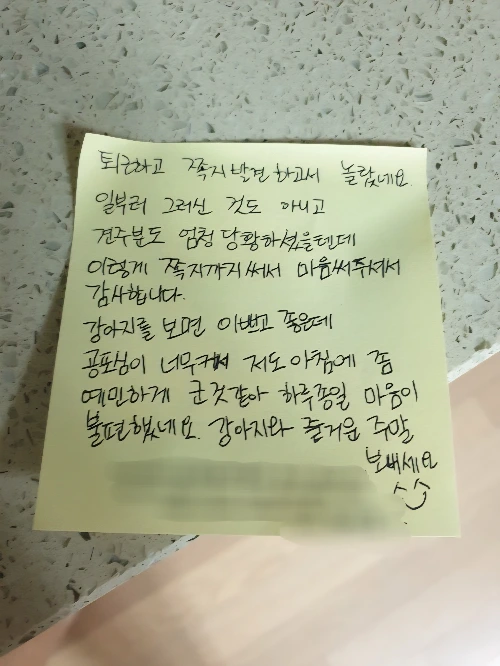 퇴근하고 쪽지 발견하고서 놀랐네요.
일부러 그러신 것도 아니고
견주분도 엄청 당황하셨을텐데
이렇게 쪽지까지 써서 마음써주셔서
감사합니다.
강아지를 보면 이쁘고 좋은데
공포심이 너무커서 저도 아침에 좀
예민하게 군것같아 하루종일 마음이
불편했네요. 강아지와 즐거운 주말
보내세요